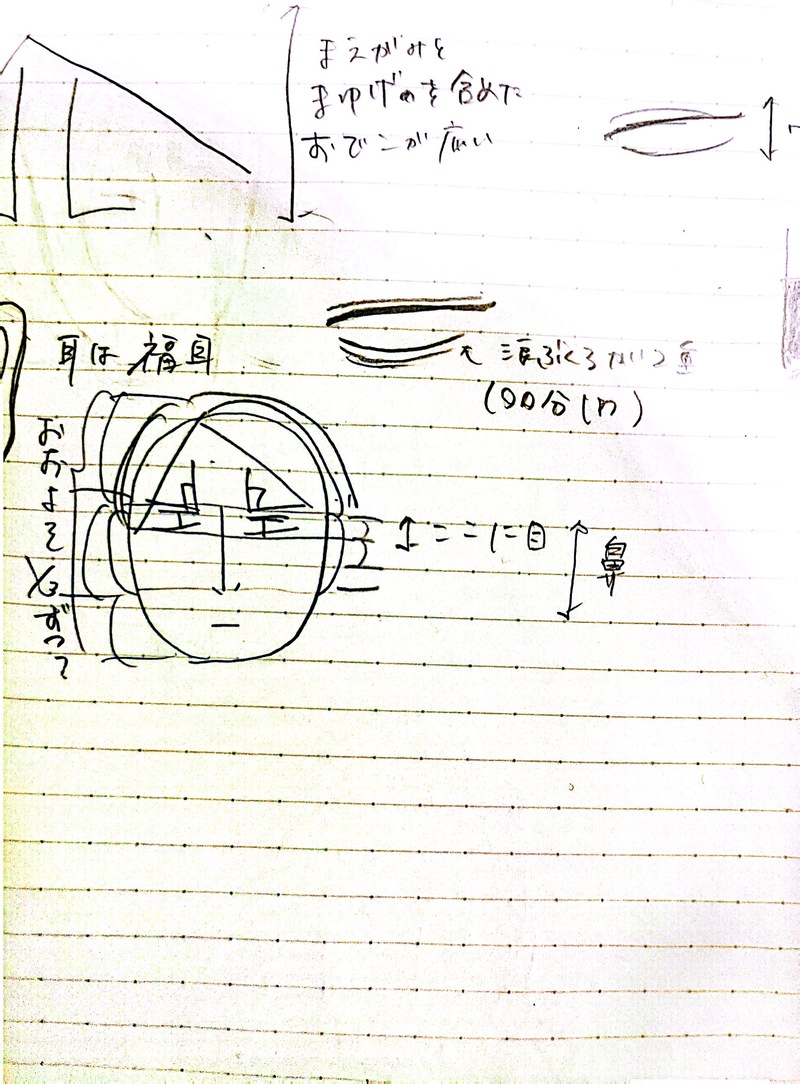 まえがみと
まゆげのを含めた
おでこが広い
耳は福耳
涙ぶくろが
おおよそ
1/3
ずつ
ここに目
鼻